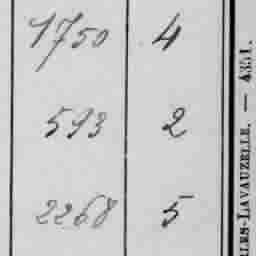 1750 4
593 2
2268 5
RLES-LAVAUZELLE. — 4351.